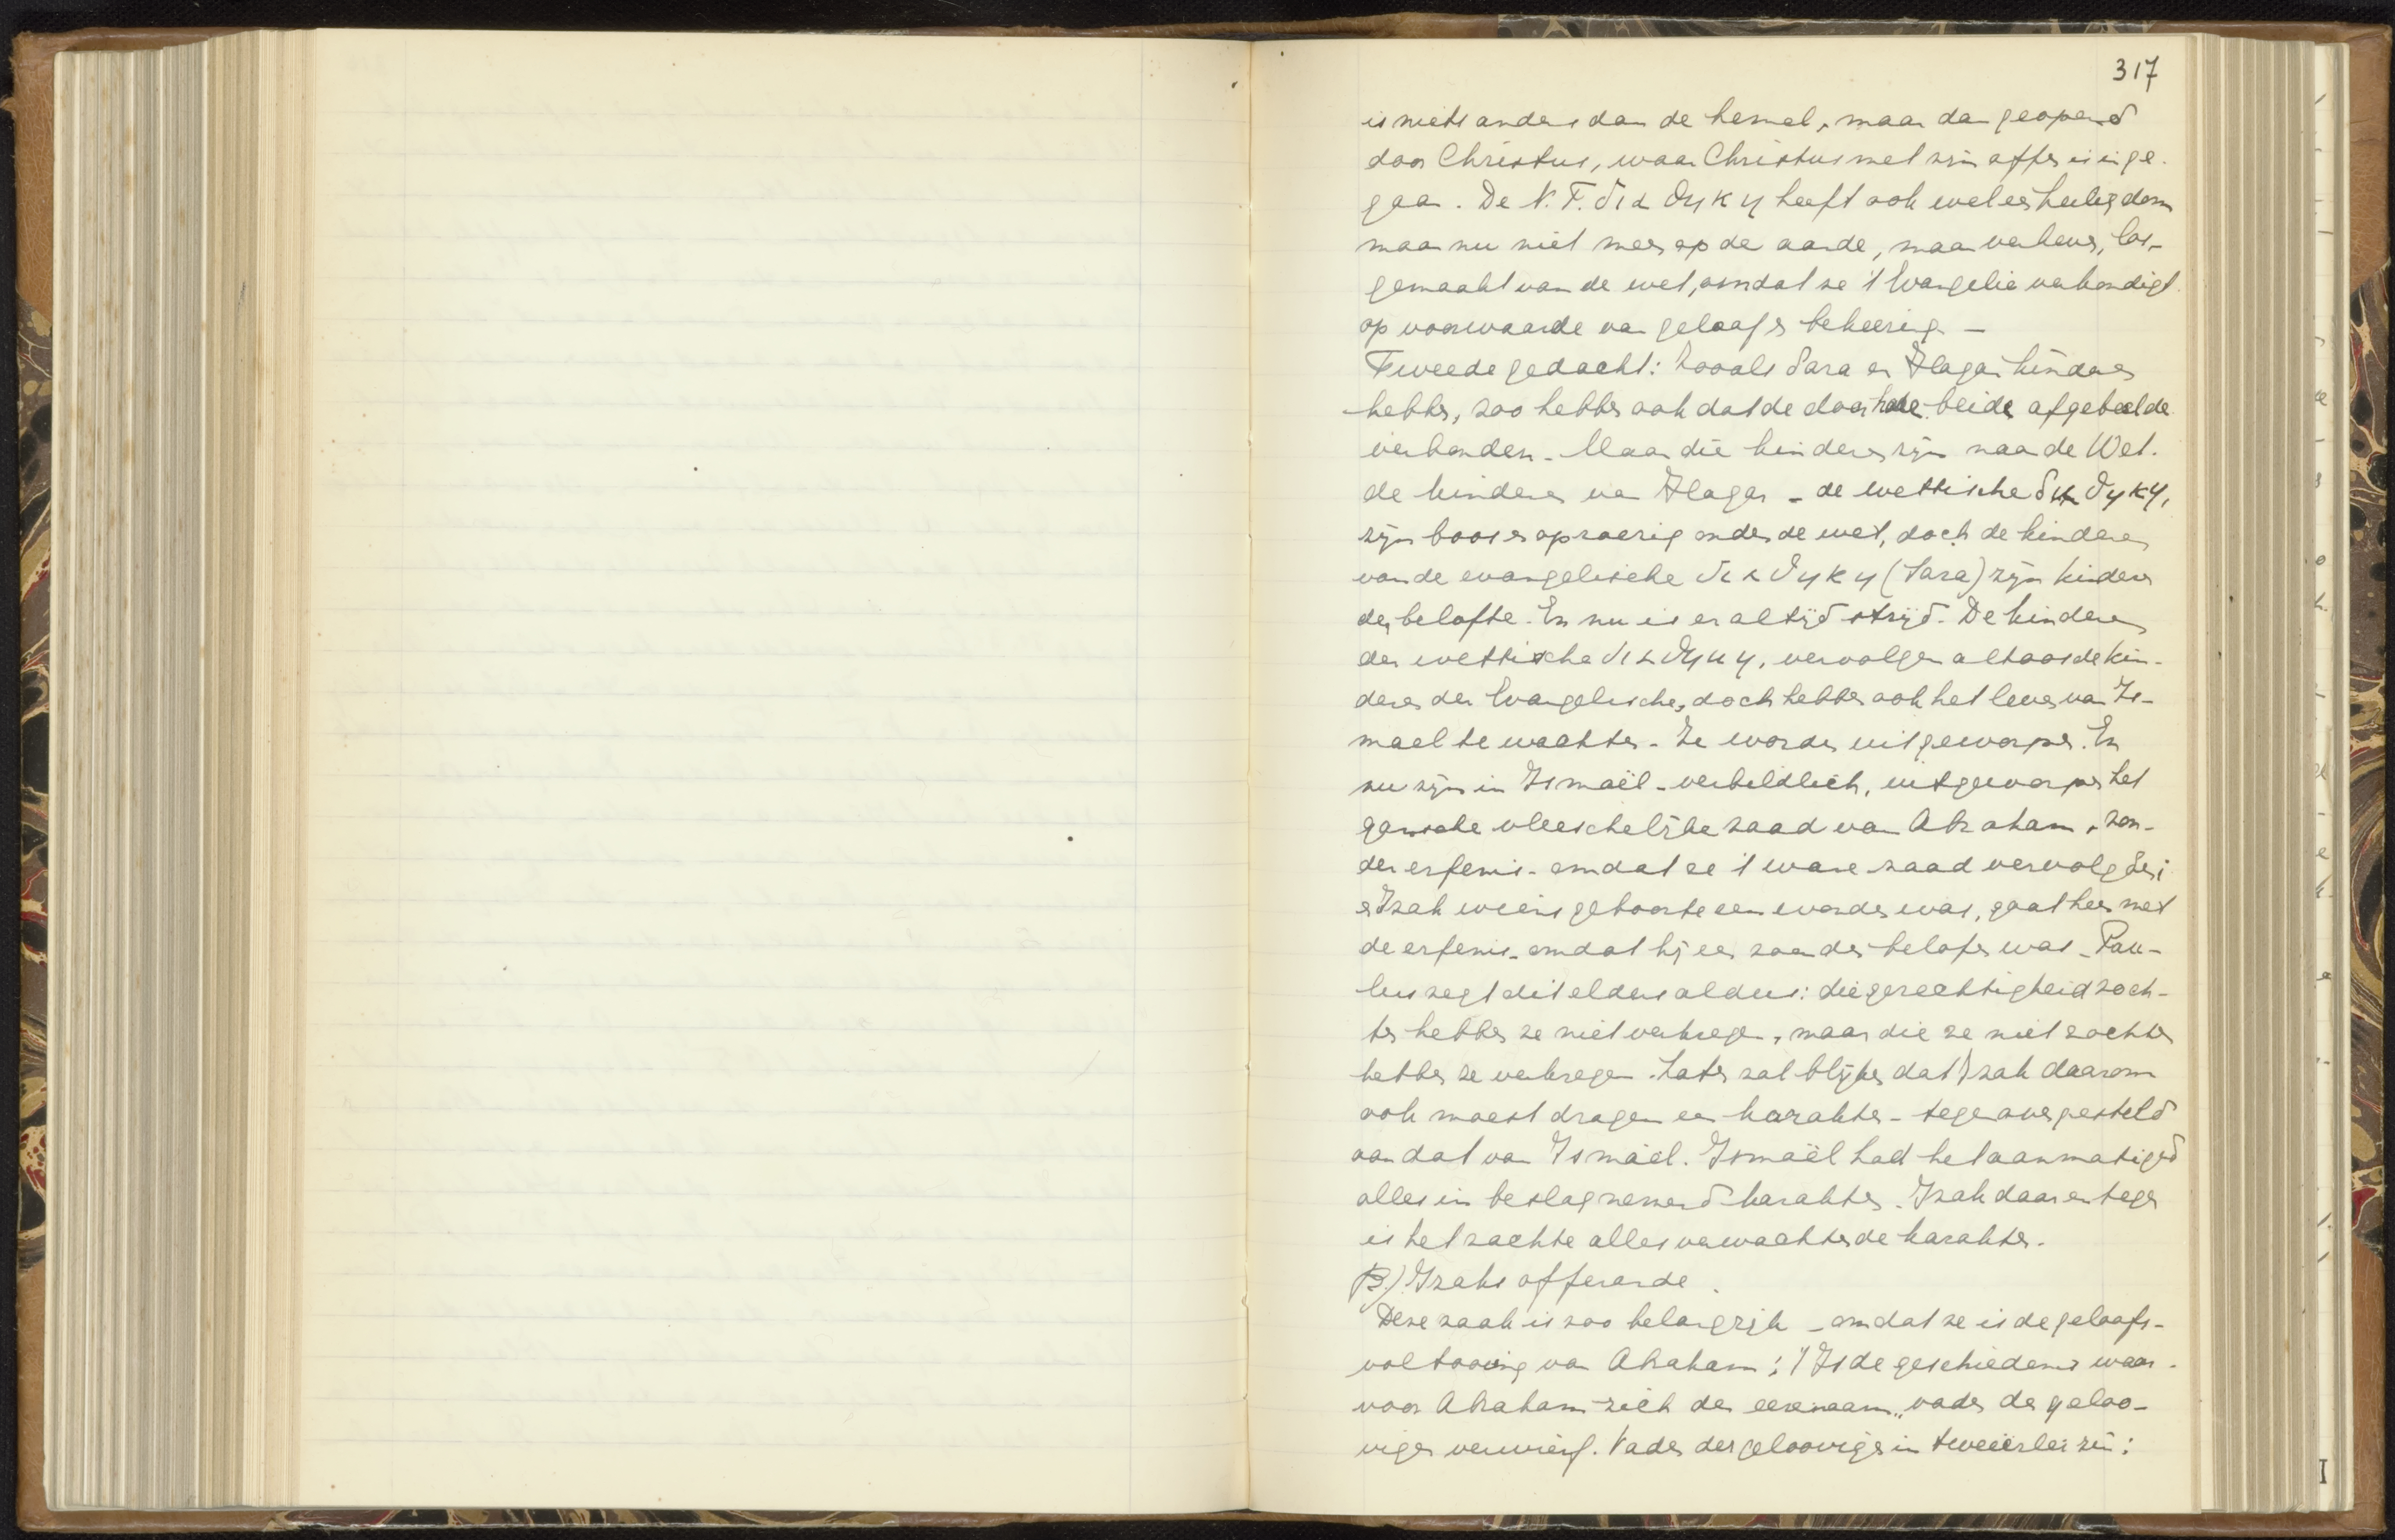 317
is niets anders dan de hemel, maar dan geopend
door Christus, waar Christus met zijn offer is inge-
gaan. De N.T. διαθηκη heeft ook wel een heiligdom
maar nu niet meer op de aarde, maar los-
gemaakt van de wet, omdat ze 't Evangelie verkondigt
op voorwaarde van geloof en bekeering. —
Tweede gedacht: Zooals Sara en Hagar kinderen
hebben, zoo hebben ook dat de door haar beide afgebeelde
verbonden. Maar die kinderen zijn naar de Wet.
de kinderen van Hagar - de wettische διαθηκη,
zijn boos en oproerig onder de wet, doch de kinderen
van de evangelische διαθηκη (Sara) zijn kinderen
der belofte. En nu is er altijd strijd. De kinderen
der wettische διαθηκη, vervolgen altoos de kin-
deren der Evangelische, doch hebben ook het leven van Is-
mael te wachten. Ze worden uitgeworpen. En
nu zijn in Ismaël - verbeeldlich, uitgeworpen het
gansche vleeschelijke zaad van Abraham, zon-
der erfenis - omdat ze 't ware zaad vervolgden;
en Izak wiens geboorte een wonder was, gaat heen met
de erfenis - omdat hij een zoon der belofte was - Pau-
lus zegt dit elders aldus: die gerechtigheid zoch-
ten hebben ze niet verkregen, maar die ze niet zochten
hebben ze verkregen. Later zal blijken dat Izak daarom
ook moest dragen een karakter - tegenovergesteld
aan dat van Ismaël. Ismaël had het aanmatigend
alles in beslag nemend karakter. Izak daarentegen
is het zachte alles verwachtende karakter.
B) Izaks offerande.
Deze zaak is zoo belangrijk - omdat ze is de geloofs-
voltooiing van Abraham; 't Is de geschiedenis waar-
voor Abraham zich den eerenaam „vader der geloo-
vigen verwierf. Vader der geloovigen in tweeërlei zin: